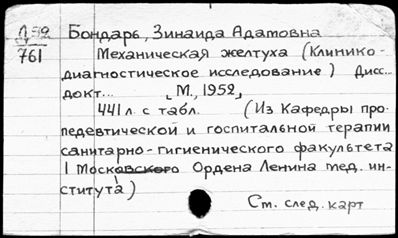 Д 52
761
Бондарь, Зинаида Адамовна
Механическая желтуха (Клинико-
диагностическое исследование) Дисс...
докт... [М., 1952]
441 л. с табл. (Из Кафедры про-
педевтической и госпитальной терапии
санитарно-гигиенического факультета
I Московского Ордена Ленина мед. ин-
ститута)
См. след. карт